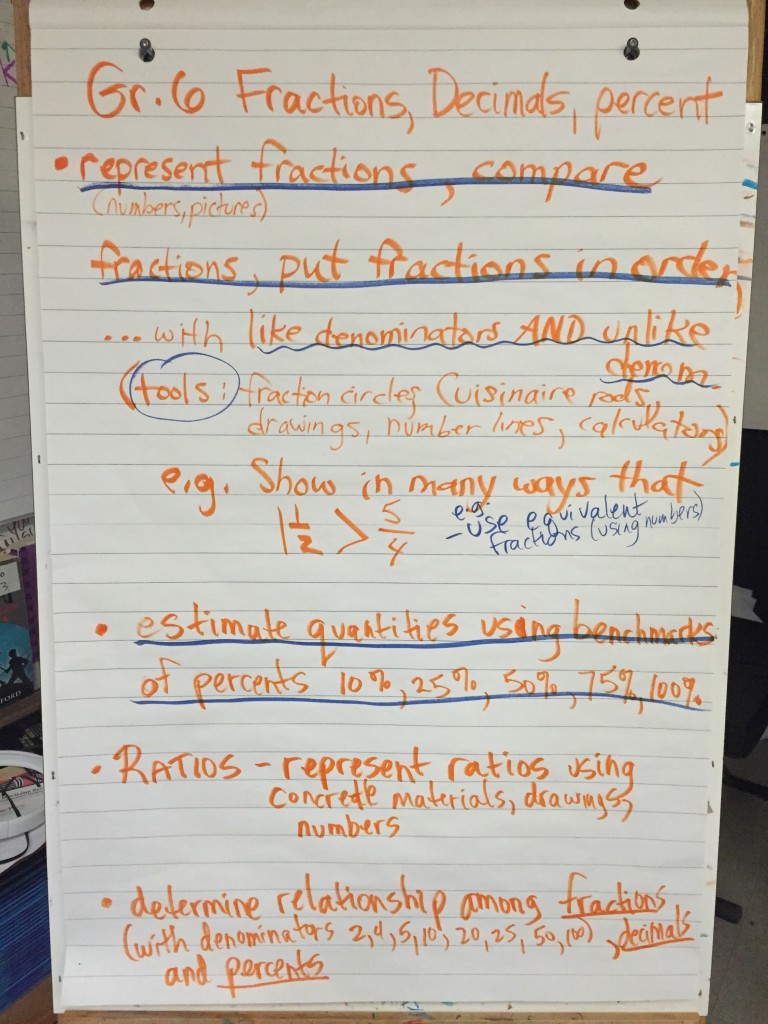 Gr.6 Fractions, Decimals, percent
• represent fractions, compare
(numbers, pictures)
fractions, put fractions in order,
... with like denominators AND unlike
denom.
(tools: fraction circles Cuisinaire rods,
drawings, number lines, calculators)
e.g. Show in many ways that
1 1/2 > 5/4
e.g.
- use equivalent
fractions (using numbers)
• estimate quantities using benchmarks
of percents 10%, 25%, 50%, 75%, 100%
• RATIOS - represent ratios using
concrete materials, drawings,
numbers
• determine relationship among fractions
(with denominators 2,4,5,10, 20, 25, 50, 100), decimals
and percents